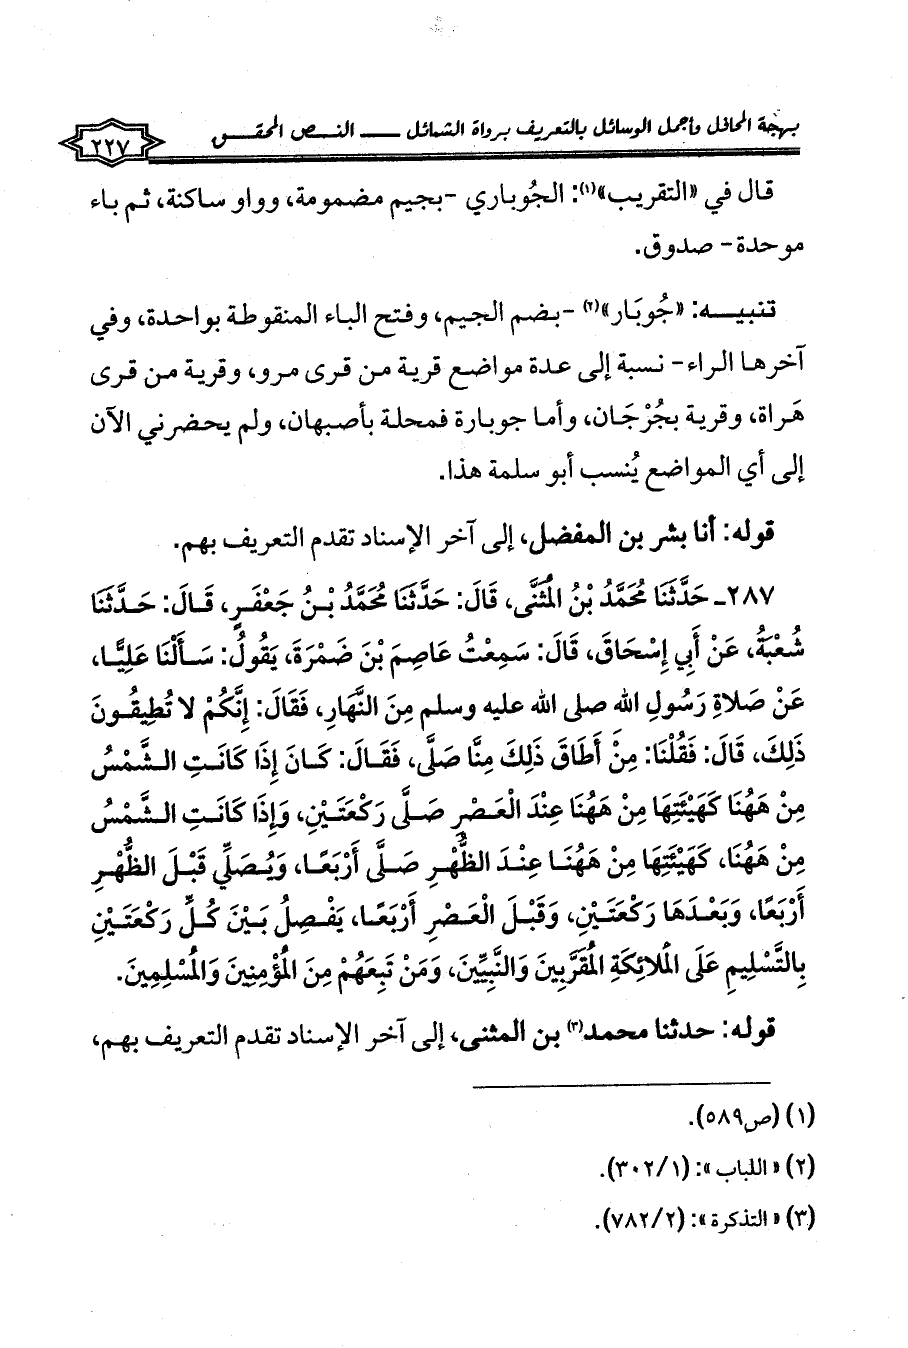 بهجة المحافل وأجمل الوسائل بالتعريف برواة الشمائل ــــ النص المحقق
٢٢٧
قال في «التقريب»(١): الجُوباري -بجيم مضمومة، وواو ساكنة، ثم باء
موحدة- صدوق.
تنبيه: «جُوبَار»(٢) -بضم الجيم، وفتح الباء المنقوطة بواحدة، وفي
آخرها الراء- نسبة إلى عدة مواضع قرية من قرى مرو، وقرية من قرى
هَراة، وقرية بجُرْجَان، وأما جوبارة فمحلة بأصبهان، ولم يحضرني الآن
إلى أي المواضع يُنسب أبو سلمة هذا.
قوله: أنا بشر بن المفضل، إلى آخر الإسناد تقدم التعريف بهم.
٢٨٧ـ حَدَّثَنَا مُحَمَّدُ بْنُ المُثَنَّى، قَالَ: حَدَّثَنَا مُحَمَّدُ بْنُ جَعْفَرٍ، قَالَ: حَدَّثَنَا
شُعْبَةُ، عَنْ أَبِي إِسْحَاقَ، قَالَ: سَمِعْتُ عَاصِمَ بْنَ ضَمْرَةَ، يَقُولُ: سَأَلْنَا عَلِيًّا،
عَنْ صَلاةِ رَسُولِ الله صلى الله عليه وسلم مِنَ النَّهَارِ، فَقَالَ: إِنَّكُمْ لا تُطِيقُونَ
ذَلِكَ، قَالَ: فَقُلْنَا: مِنْ أَطَاقَ ذَلِكَ مِنَّا صَلَّى، فَقَالَ: كَانَ إِذَا كَانَتِ الشَّمْسُ
مِنْ هَهُنَا كَهَيْئَتِهَا مِنْ هَهُنَا عِنْدَ الْعَصْرِ صَلَّى رَكْعَتَيْنِ، وَإِذَا كَانَتِ الشَّمْسُ
مِنْ هَهُنَا، كَهَيْئَتِهَا مِنْ هَهُنَا عِنْدَ الظُّهْرِ صَلَّى أَرْبَعًا، وَيُصَلِّي قَبْلَ الظُّهْرِ
أَرْبَعًا، وَبَعْدَهَا رَكْعَتَيْنِ، وَقَبْلَ الْعَصْرِ أَرْبَعًا، يَفْصِلُ بَيْنَ كُلِّ رَكْعَتَيْنِ
بِالتَّسْلِيمِ عَلَى الْمَلائِكَةِ الْمُقَرَّبِينَ وَالنَّبِيِّينَ، وَمَنْ تَبِعَهُمْ مِنَ الْمُؤْمِنِينَ وَالْمُسْلِمِينَ.
قوله: حدثنا محمد(٣) بن المثنى، إلى آخر الإسناد تقدم التعريف بهم،
(١) (ص٥٨٩).
(٢) «اللباب»: (٣٠٢/١).
(٣) «التذكرة»: (٧٨٢/٢).